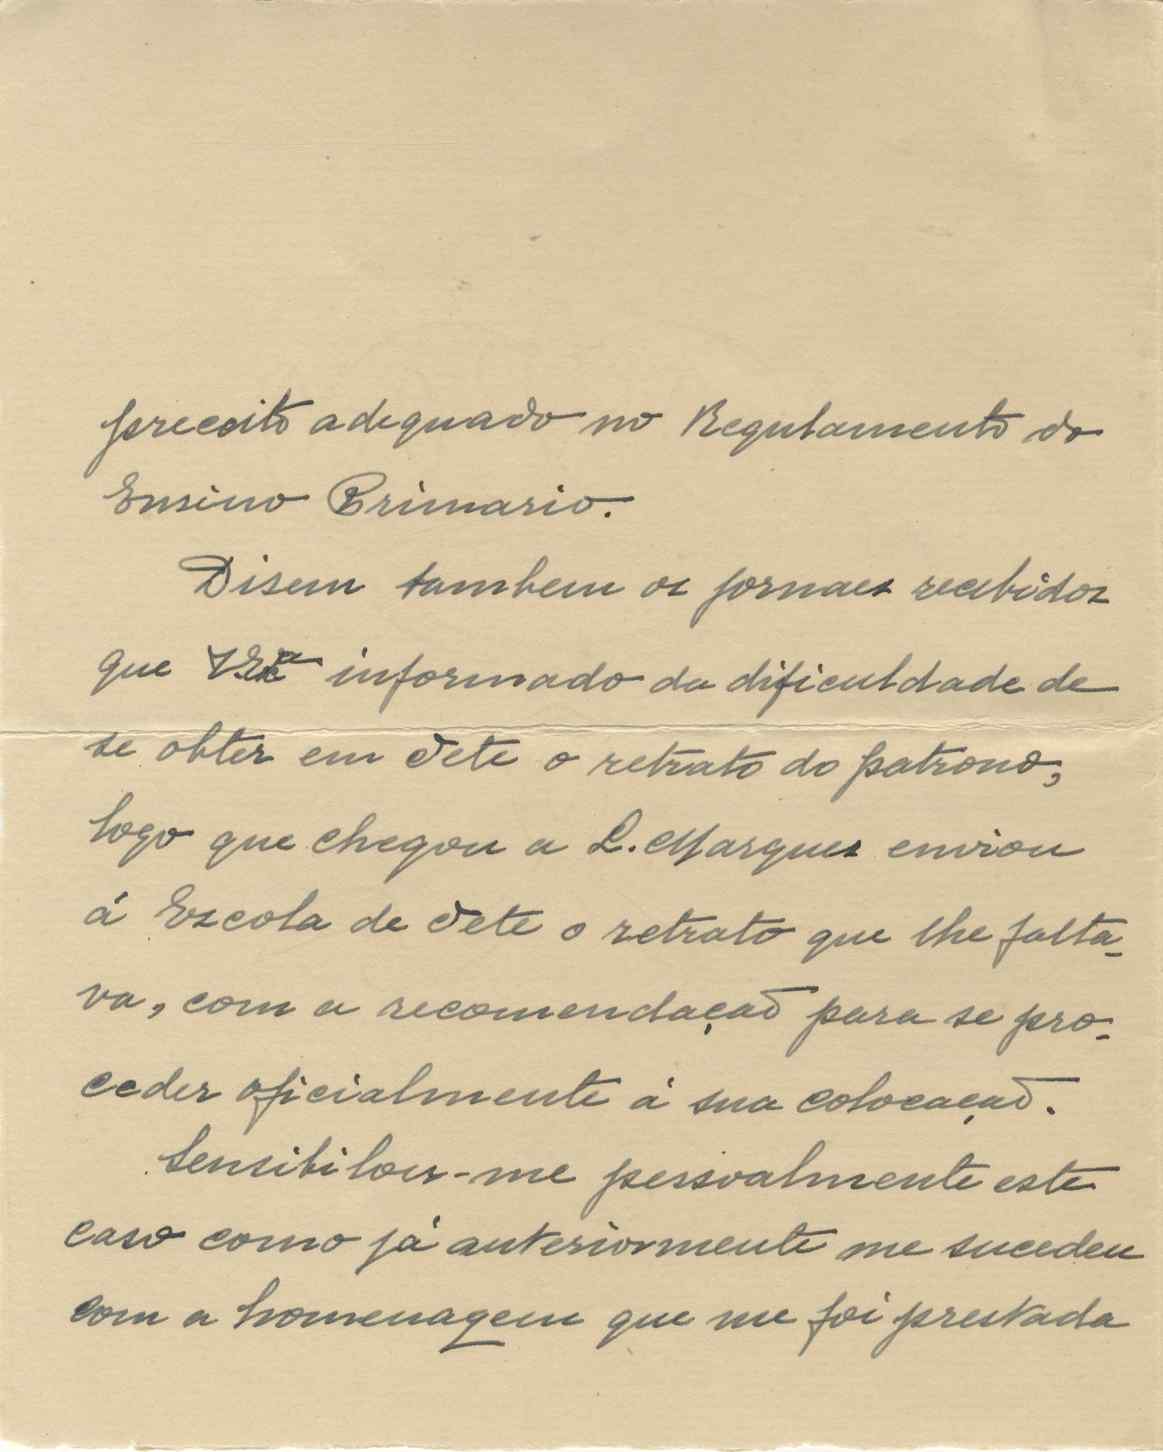 preceito adequado no Regulamento do
Ensino Primario.
Disem tambem os jornaes recebidos
que V. Exª informado da dificuldade de
se obter em Tete o retrato do patrono,
logo que chegou a L. Marques enviou
á Escola de Tete o retrato que lhe falta-
va, com a recomendação para se pro-
ceder oficialmente á sua colocação.
Sensibilou-me pessoalmente este
caso como já anteriormente me sucedeu
com a homenagem que me foi prestada